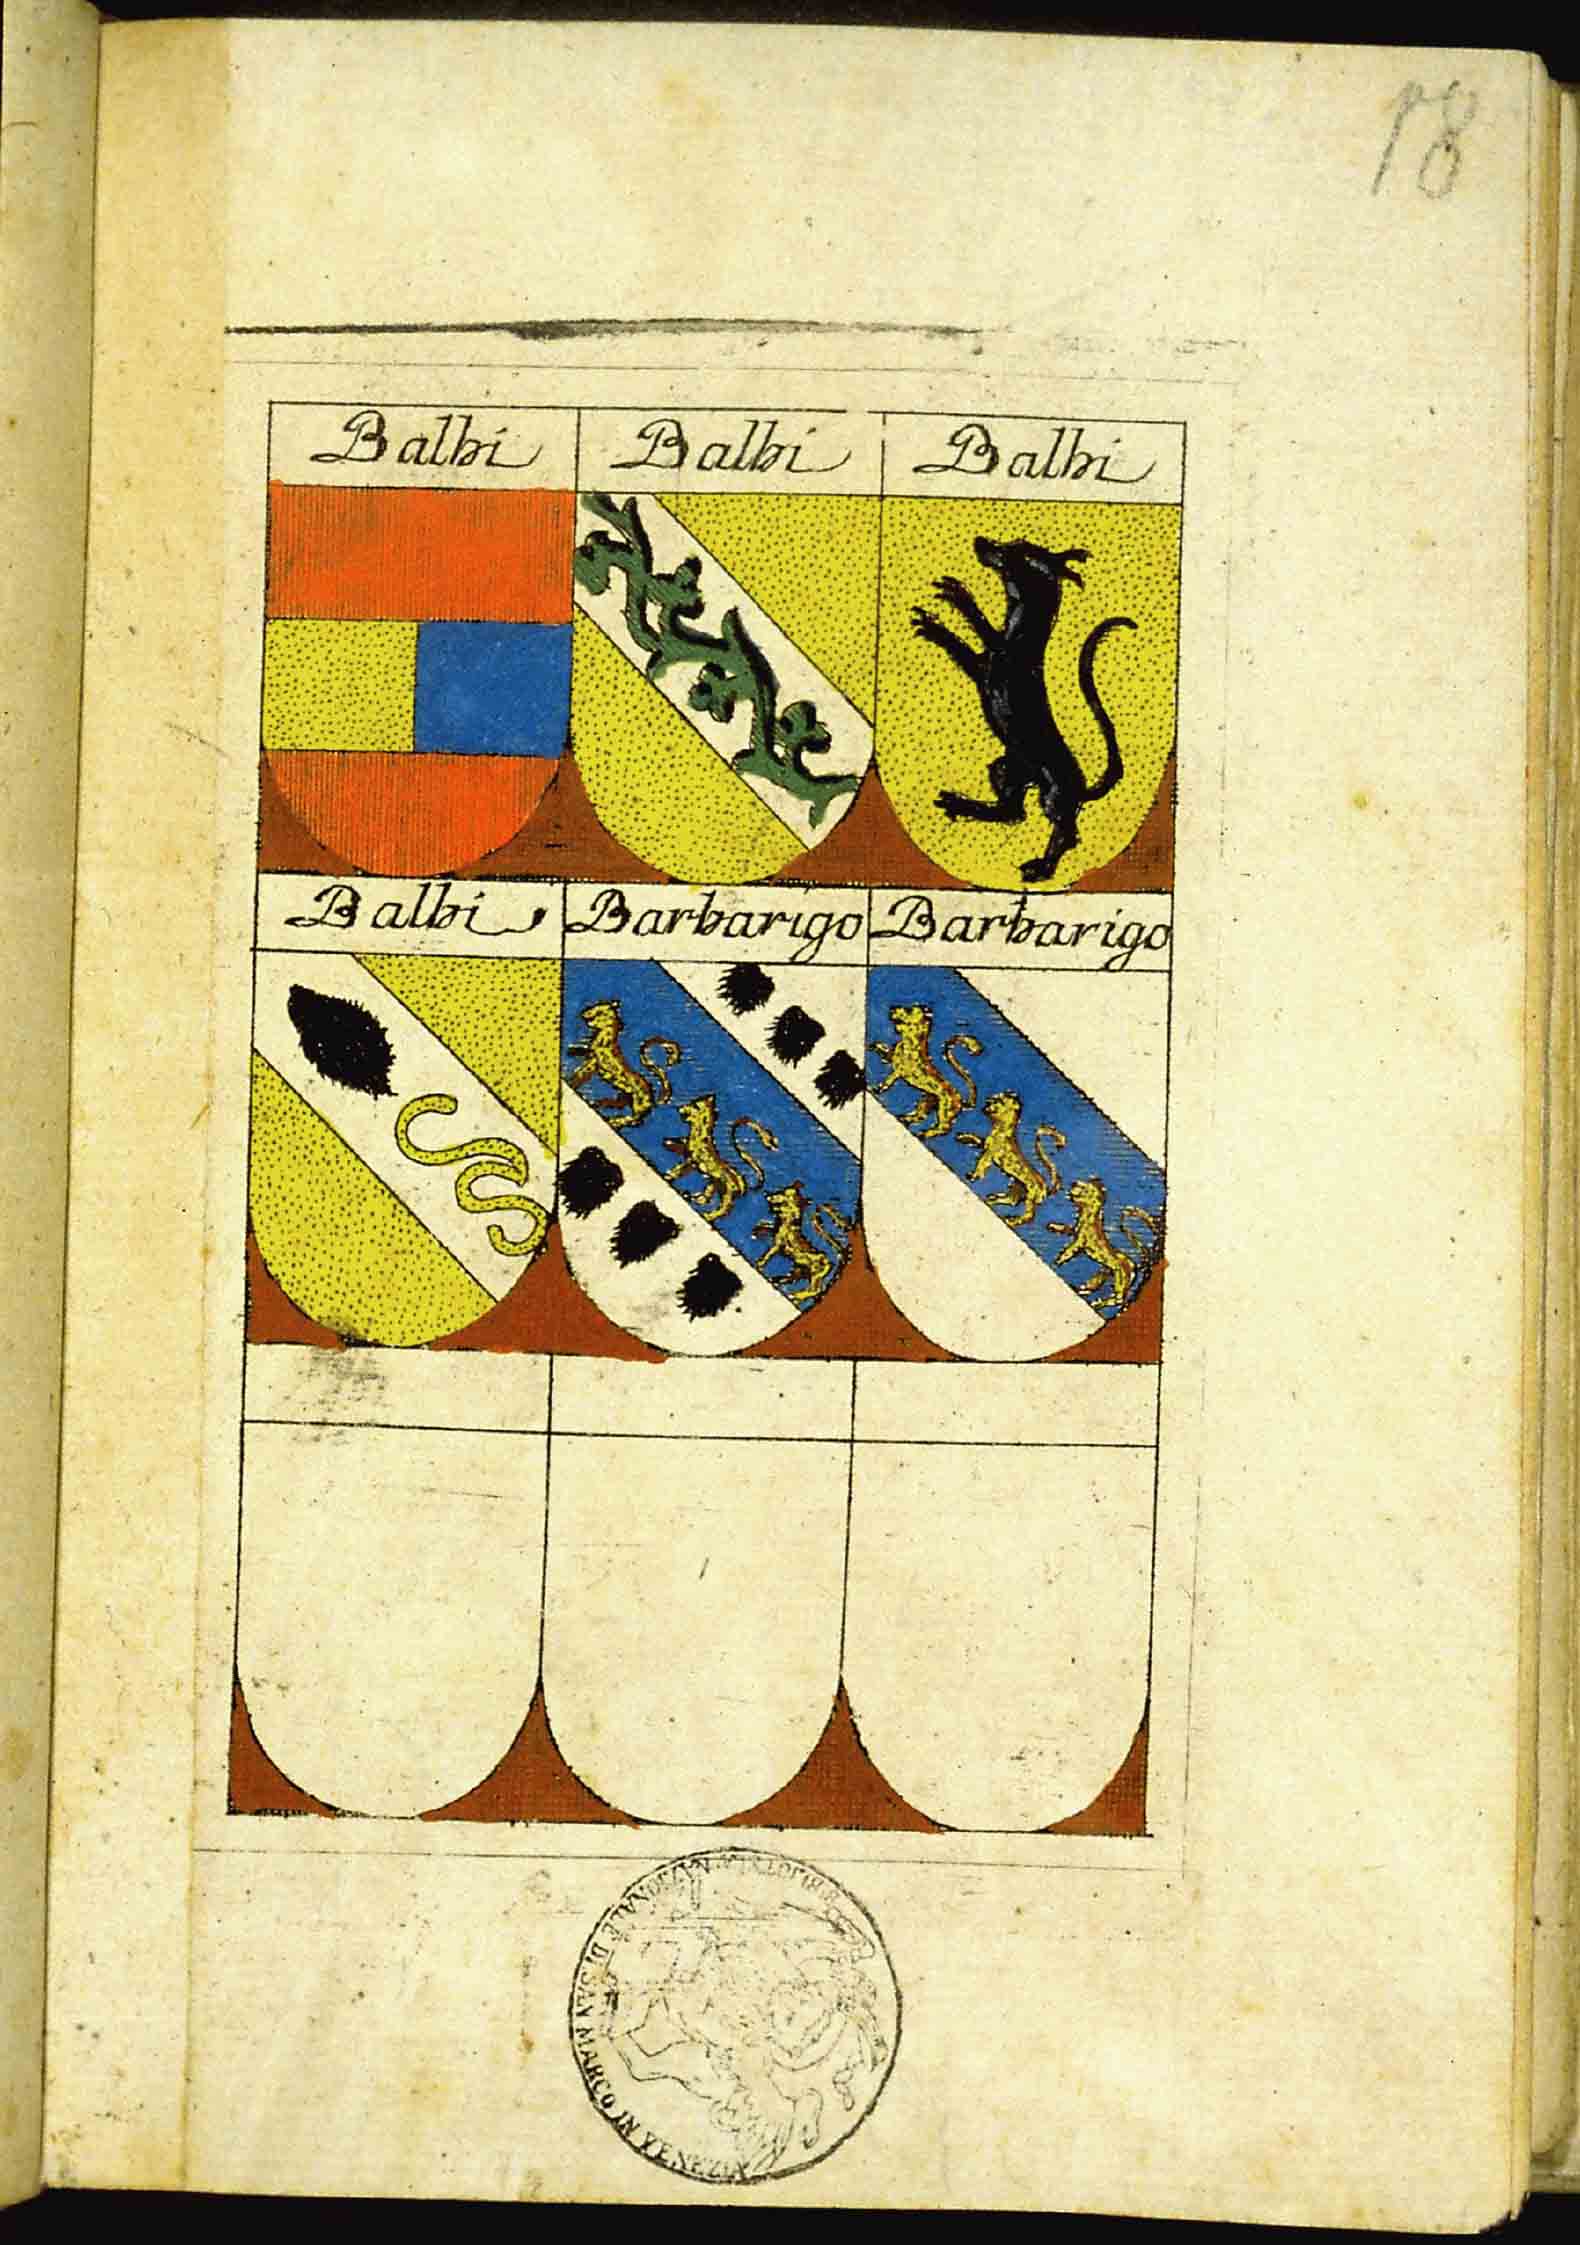 18
Balbi Balbi Balbi
Balbi Barbarigo Barbarigo
NAZIONALE DI SAN MARCO IN VENEZIA